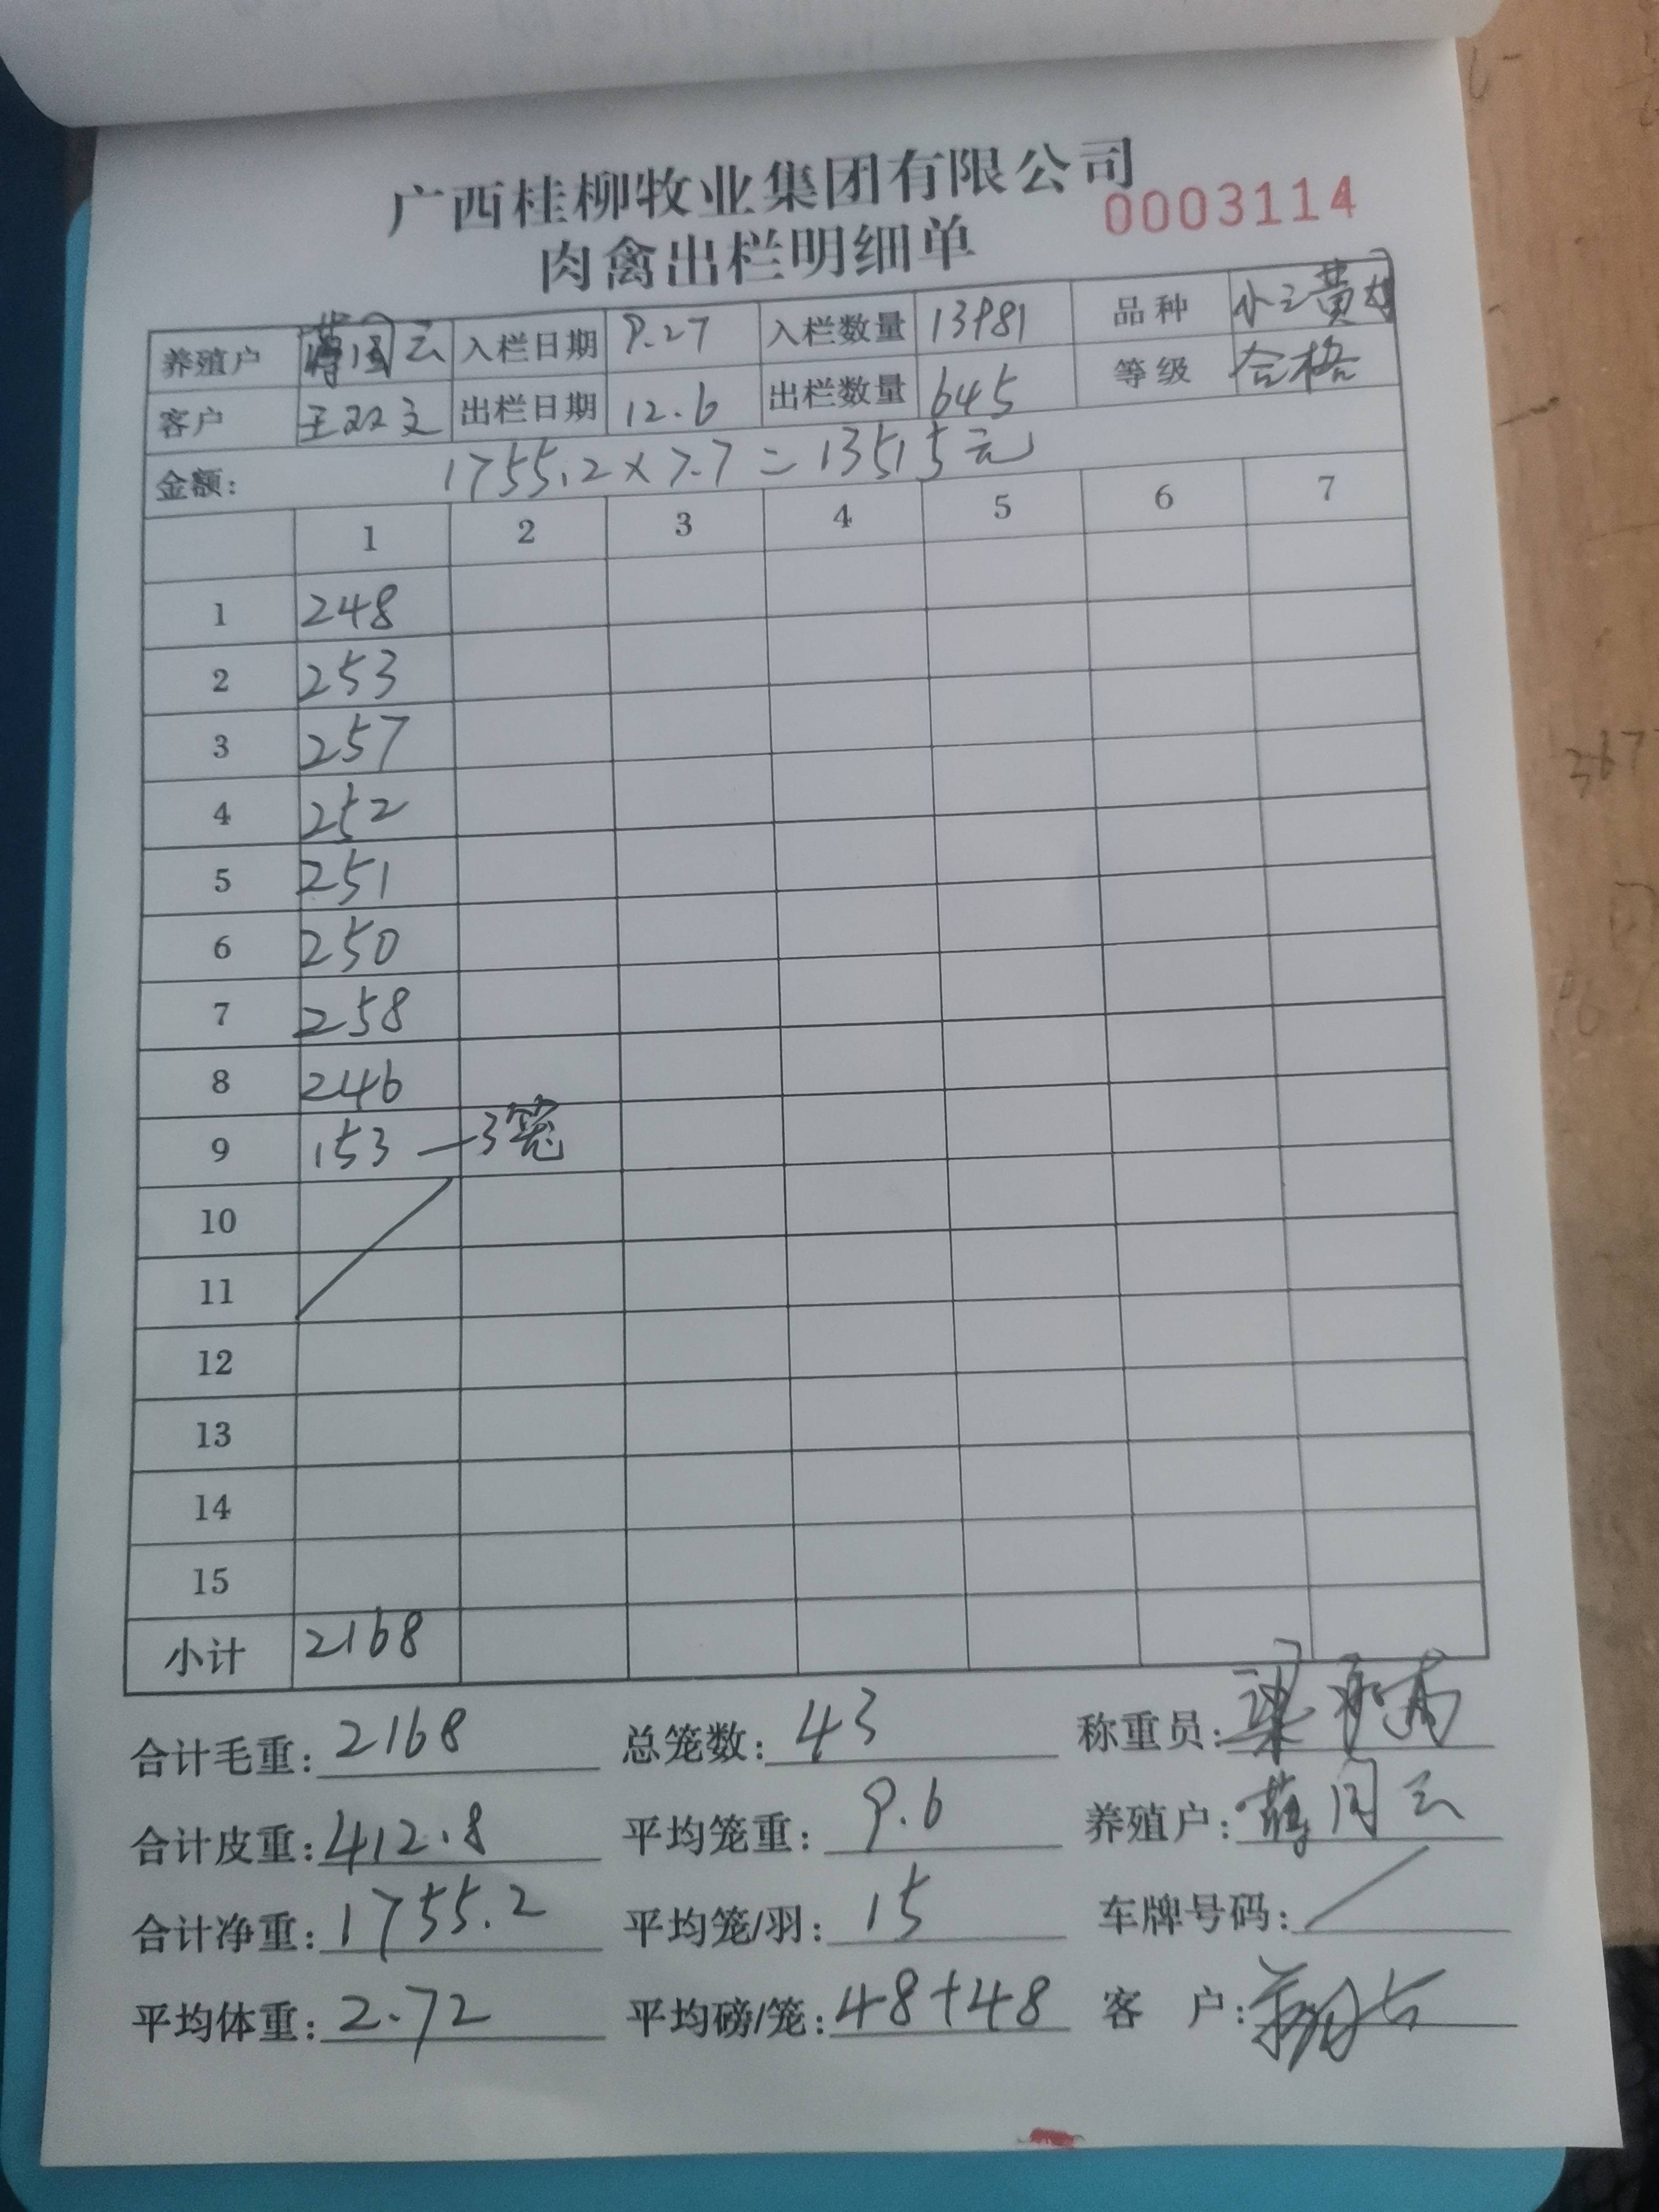 广西桂柳牧业集团有限公司
0003114
肉禽出栏明细单
养殖户 蒋国云 入栏日期 9.27 入栏数量 13981 品种
客户 王双文 出栏日期 12.6 出栏数量 645 等级 合格
金额: 1755.2×7.7=13515元
1 2 3 4 5 6 7
1 248
2 253
3 257
4 252
5 251
6 250
7 258
8 246
9 153 —3笼
10
11
12
13
14
15
小计 2168
合计毛重: 2168 总笼数: 43 称重员:
合计皮重: 412.8 平均笼重: 9.6 养殖户: 蒋国云
合计净重: 1755.2 平均笼/羽: 15 车牌号码: /
平均体重: 2.72 平均磅/笼: 48+48 客 户:
367